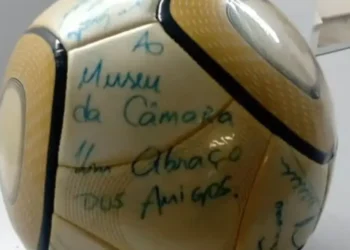 Ao
Museu
da Câmara
um Abraço
Dos Amigos.